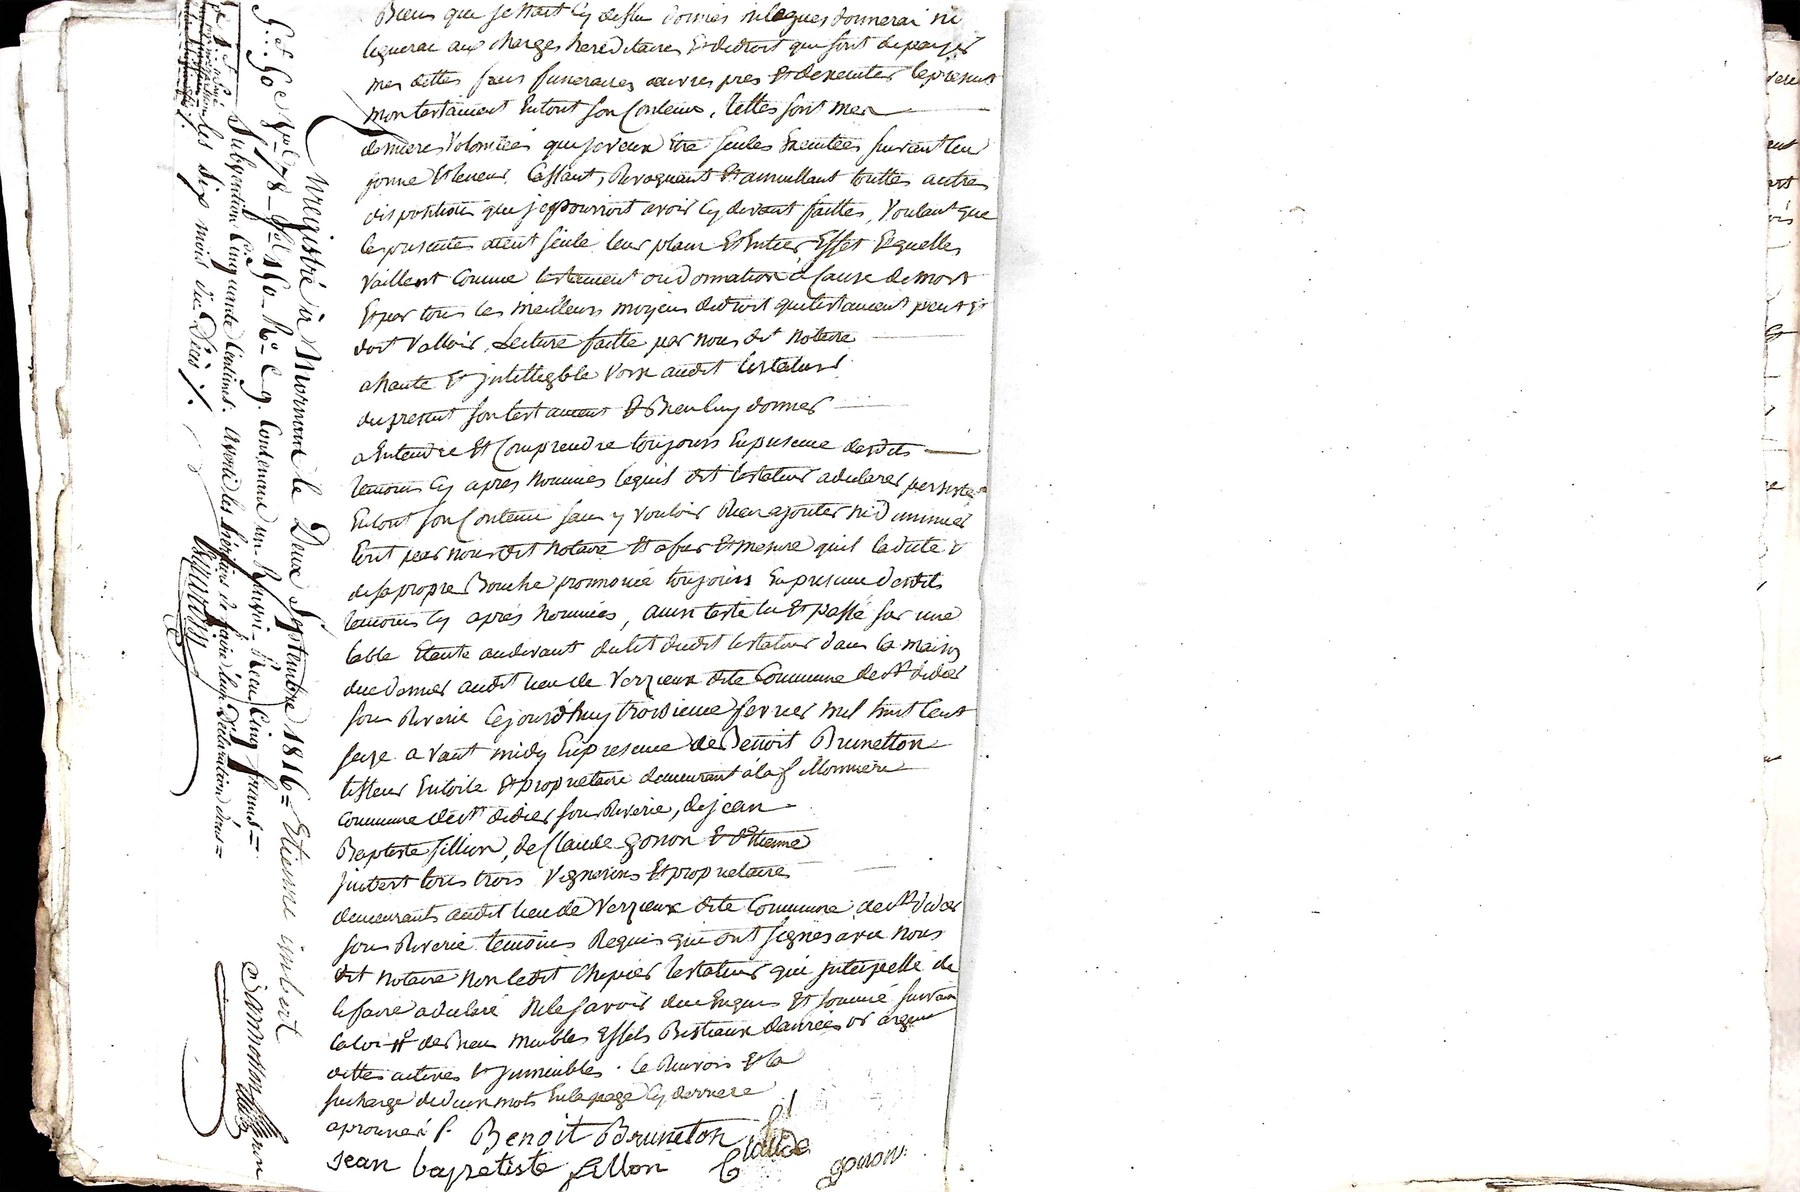 Biens que je n'ait Cy dessus donnés ni legues donnerai ni
leguerai aux charges hereditaires Et de droit qui sont de payer
mes dettes frais funeraires œuvres pies Et d'executer le présent
mon testament En tout son Contenu, telles sont mes
dernieres Volontées que je veux être seules Executées suivant leur
forme Et teneur. Cassant, Revoquant Et annullant touttes autres
dispositions que je pourroit avoir Cy devant faittes, Voulant que
les presentes aient seule leur plain Et Entier Effet Et quelles
vaillent Comme testement ou donnation à Cause de mort
Et par tous les meilleurs moyens de droit que testament peut Et
doit valloir, Lecture faitte par nous dt notaire
a haute Et jntelligible voix audit testateur
du present son testament Et Bien luy donner
a Entendre Et Comprendre toujours En presence desdits
temoins Cy apres nommés lequel dit testateur a declarer persister
En tout son Contenu sans y vouloir Rien ajouter ni diminuer
Ecrit par nous dit notaire Et a fur Et mesure quil la dicté &
de sa propre Bouche prononcé toujours En presence desdits
temoins Cy aprés nommés, ainsi testé lu Et passé sur une
table Etante au devant du lit dudit testateur dans la maison
de dernier audit lieu de Verzieux dite Commune de st didier
sous Riverie Cejourd'huy troisieme fevrier mil huit Cent
seize avant midy En presence de Benoit Brunetton
tisseur En toile Et proprietaire demeurant à la fillonniere
Commune de st didier sous Riverie, de jean
Baptiste fillion, de Claude gonon Et d'Etienne
jmbert tous trois Vignerons Et proprietaires
demeurants audit lieu de Verzieux dite Commune de st didier
sous Riverie temoins Requis qui ont signés avec nous
dit notaire non ledit Chipier testateur qui jnterpellé de
le faire a declaré ne le savoir de ce Enquis Et sommé suivant
la loi de Biens meubles Effets Bestiaux danrées or argent
dettes actives Et jmmeubles. le Renvois Et la
surcharge de deux mots En la page Cy derriere
aprouvés
Benoit Bruneton
jean baptetiste fillon Claude gonon
Etienne imbert
Enregistré à Mornant le Deux Septembre 1816
Contenant un Renvoi. Reçu Cinq francs
Subvention Cinquante Centimes. Averti les héritiers de faire leur déclaration dans
les six mois du Décès